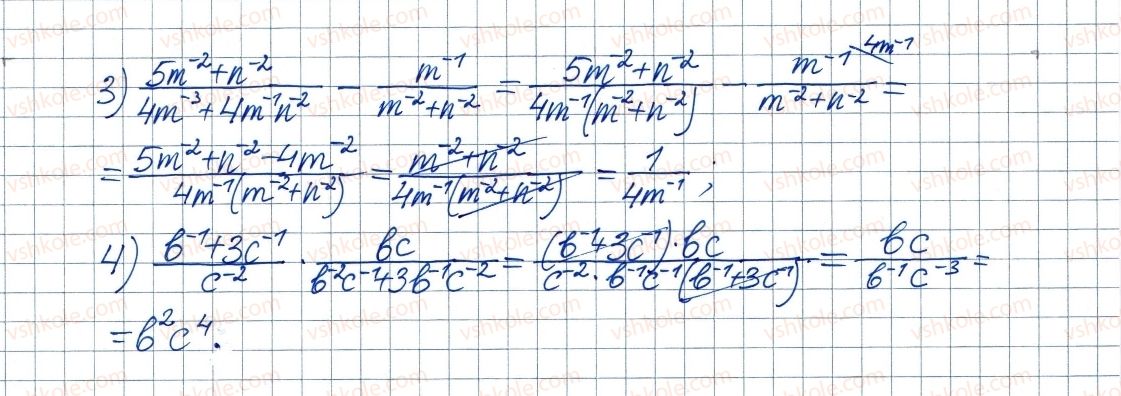 3) (5m⁻² + n⁻²)/(4m⁻³ + 4m⁻¹n⁻²) − m⁻¹/(m⁻² + n⁻²) = (5m⁻² + n⁻²)/(4m⁻¹(m⁻² + n⁻²)) − m⁻¹ \4m⁻¹/(m⁻² + n⁻²) =
= (5m⁻² + n⁻² − 4m⁻²)/(4m⁻¹(m⁻² + n⁻²)) = (m⁻² + n⁻²)/(4m⁻¹(m⁻² + n⁻²)) = 1/(4m⁻¹) ;
4) (b⁻¹ + 3c⁻¹)/c⁻² · bc/(b⁻²c⁻¹ + 3b⁻¹c⁻²) = ((b⁻¹ + 3c⁻¹) · bc)/(c⁻² · b⁻¹c⁻¹(b⁻¹ + 3c⁻¹)) = bc/(b⁻¹c⁻³) =
= b²c⁴.